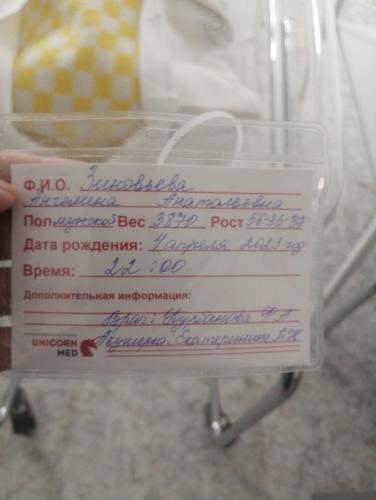 Ф.И.О. Зиновьева
Ангелина Анатольевна
Пол мужской Вес 3870 Рост 56-36-37
Дата рождения: 4 апреля 2023 год
Время: 22:00
Дополнительная информация:
Врач: Курбанова Ф.А
UNICORN MED Акушерка: Екатеринина Т.Н